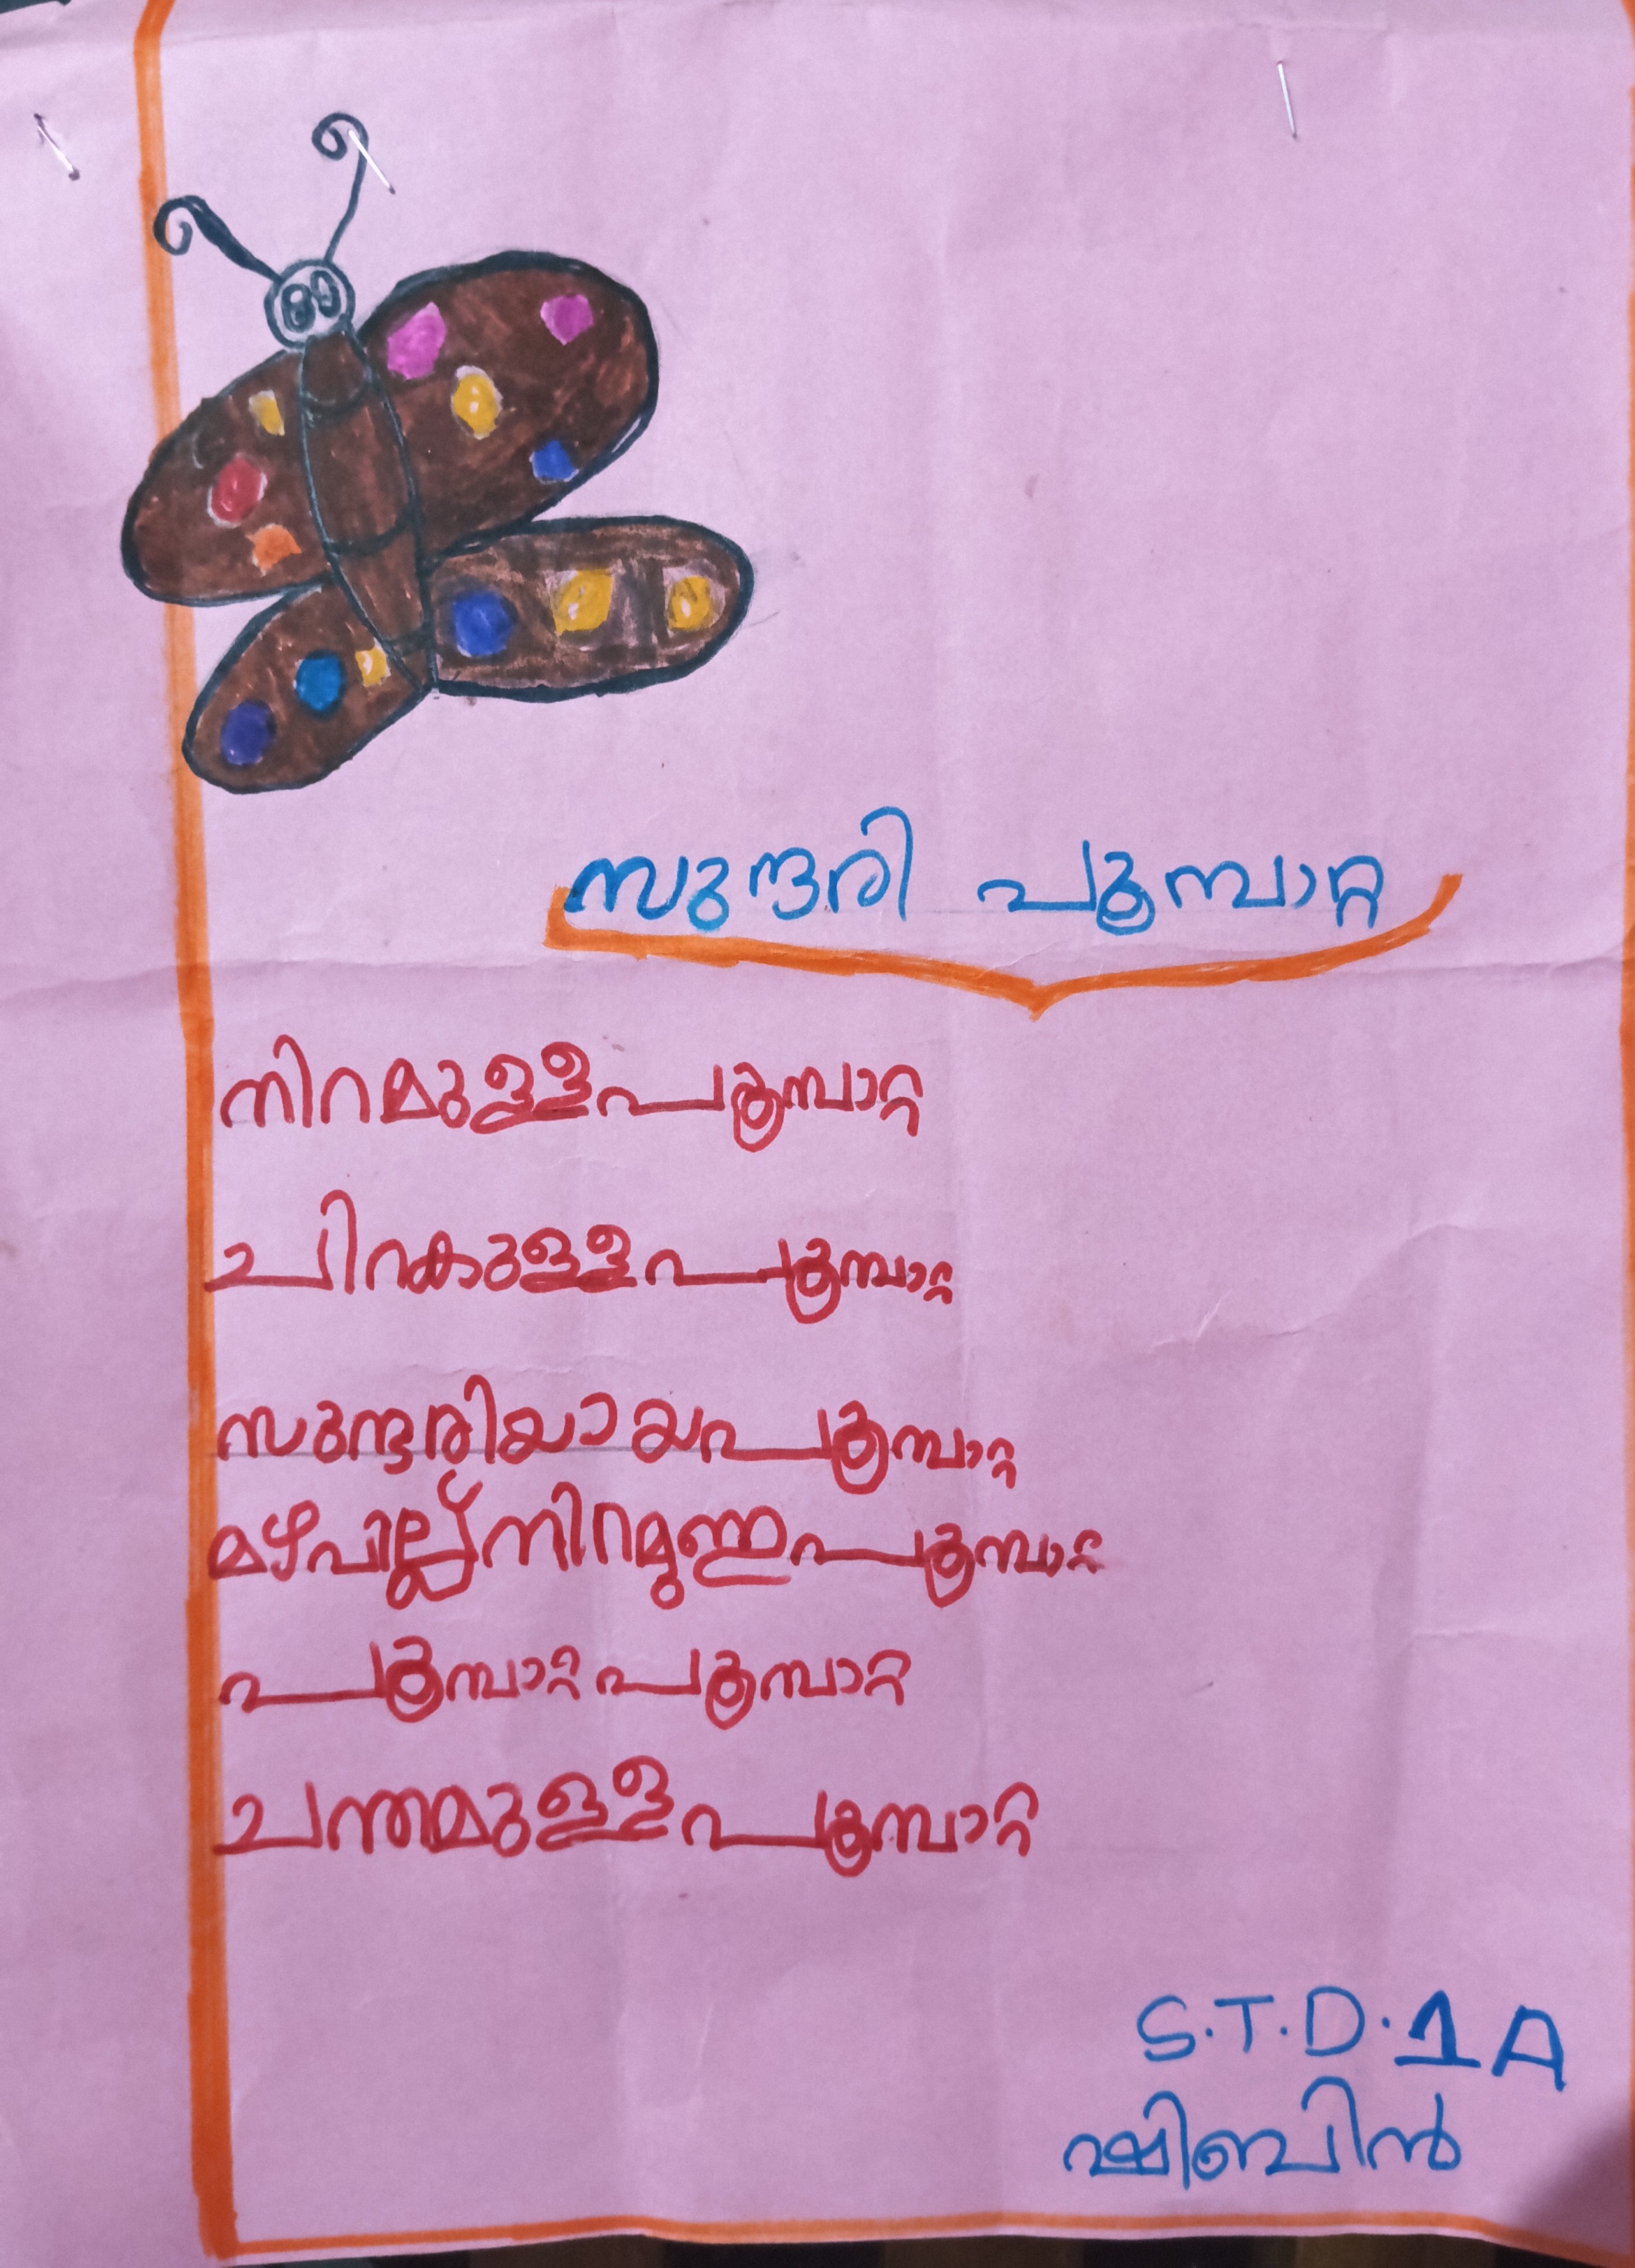 സുന്ദരി പൂമ്പാറ്റ
നിറമുള്ളപൂമ്പാറ്റ
ചിറകുള്ളപൂമ്പാറ്റ
സുന്ദരിയായപൂമ്പാറ്റ
മഴവില്ല്നിറമുണ്ടപൂമ്പാറ്റ
പൂമ്പാറ്റപൂമ്പാറ്റ
ചന്തമുള്ളപൂമ്പാറ്റ
S.T.D.1A
ഷിബിൻ